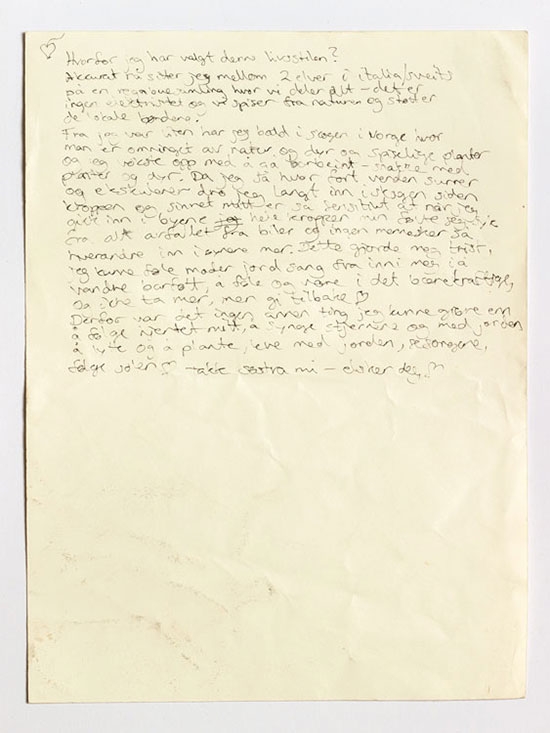 Hvorfor jeg har valgt denne livsstilen?
Akkurat nå sitter jeg mellom 2 elver i italia/sveits
på en hvor vi deler alt - det er
ingen elektrisitet og vi spiser fra naturen og støtter
de lokale bøndene.
Fra jeg var liten har jeg bodd i skogen i Norge hvor
man er omringet av natur og dyr og spiselige planter
og jeg vokste opp med å gå barbeint - snakke med
planter og dyr. Da jeg så hvor fort verden surrer
og eksisterer dro jeg langt inn i skogen siden
kroppen og sinnet mitt er så sensitivt at når jeg
gikk inn i byene hele kroppen min føltes syk
fra alt avfallet fra biler og ingen mennesker så
hverandre inn i øynene mer. Dette gjorde meg trist,
jeg kunne føle moder jord sang fra inni meg i å
vandre barfott, å føle og være i det bærekraftige,
og ikke ta mer, men gi tilbake ♡
Derfor var det ingen annen ting jeg kunne gjøre enn
å følge hjertet mitt, å synge stjernene og med jorden
å lytte og å plante, leve med jorden, sesongene,
følge solen ♡ takk søstra mi - elsker deg ♡